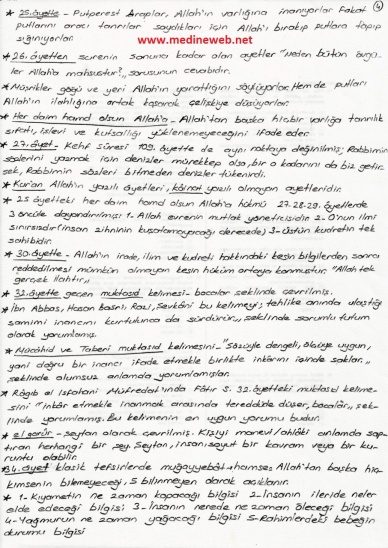 4
* 25. ayette - Putperest Araplar, Allah'ın varlığına inanıyorlar fakat
putlarını aracı tanrılar saydıkları için Allah'ı bırakıp putlara tapıp
sığınıyorlar.
www.medineweb.net
* 26. ayetten surenin sonuna kadar olan ayetler "Neden bütün övgü-
ler Allah'a mahsustur?" sorusunun cevabıdır.
* Müşrikler göğü ve yeri Allah'ın yarattığını söylüyorlar. Hem de putları
Allah'ın ilahlığına ortak koşarak çelişkiye düşüyorlar.
* Her daim hamd olsun Allah'a - Allah'tan başka hiçbir varlığa tanrılık
sıfatı, işlevi ve kutsallığı yüklenemeyeceğini ifade eder.
* 27. ayet - Kehf Sûresi 109. ayette de aynı noktaya değinilmiş; Rabbimin
sözlerini yazmak için denizler mürekkep olsa, bir o kadarını da biz getir-
sek, Rabbimin sözleri bitmeden denizler tükenirdi.
* Kur'an Allah'ın yazılı âyetleri, kâinat yazılı olmayan ayetleridir.
* 25 âyetteki her daim hamd olsun Allah'a hükmü 27.28.29. âyetlerde
3 öncüle dayandırılmış 1- Allah evrenin mutlak yöneticisidir 2- O'nun ilmi
sınırsızdır (insan zihninin kuşatamayacağı derecede) 3- Üstün kudretin tek
sahibidir.
* 30. ayette - Allah'ın irade, ilim ve kudreti hakkındaki kesin bilgilerden sonra
reddedilmesi mümkün olmayan kesin hüküm ortaya konmuştur: "Allah tek
gerçek İlahtır,,
* 32. ayette geçen muktasıd kelimesi - bocalar şeklinde çevrilmiş.
* İbn Abbas, Hasan Basri, Razi, Şevkâni bu kelimeyi; tehlike anında ulaştığı
samimi inancını kurtulunca da sürdürür,, şeklinde sorumlu tutum
olarak yorumlamış.
* Mücâhid ve Taberi muktasıd kelimesini - "Sözüyle dengeli, ölçüye uygun,
yani doğru bir inancı ifade etmekle birlikte inkârını içinde saklar.,,
şeklinde olumsuz anlamda yorumlamışlar.
* Râgıb el Isfahani Müfredat'ında Fâtır s. 32. âyetteki muktasıd kelime-
sini "inkâr etmekle inanmak arasında tereddüde düşer, bocalar,, şek-
linde yorumlamış. Bu kelimenin en uygun yorumu budur.
* el garûr - şeytan olarak çevrilmiş. Kişiyi manevi/ahlâki anlamda sap-
tıran herhangi bir şey, Şeytan, insan, soyut bir kavram veya bir ku-
runtu olabilir.
* 34. âyet klasik tefsirlerde muğayyebât-ı hamse; Allah'tan başka hiç
kimsenin bilemeyeceği, 5 bilinmeyen olarak açıklanır.
* 1- Kıyametin ne zaman kopacağı bilgisi 2- İnsanın ileride neler
elde edeceği bilgisi; 3- İnsanın nerede ne zaman öleceği bilgisi
4- Yağmurun ne zaman yağacağı bilgisi 5- Rahimlerdeki bebeğin
durumu bilgisi